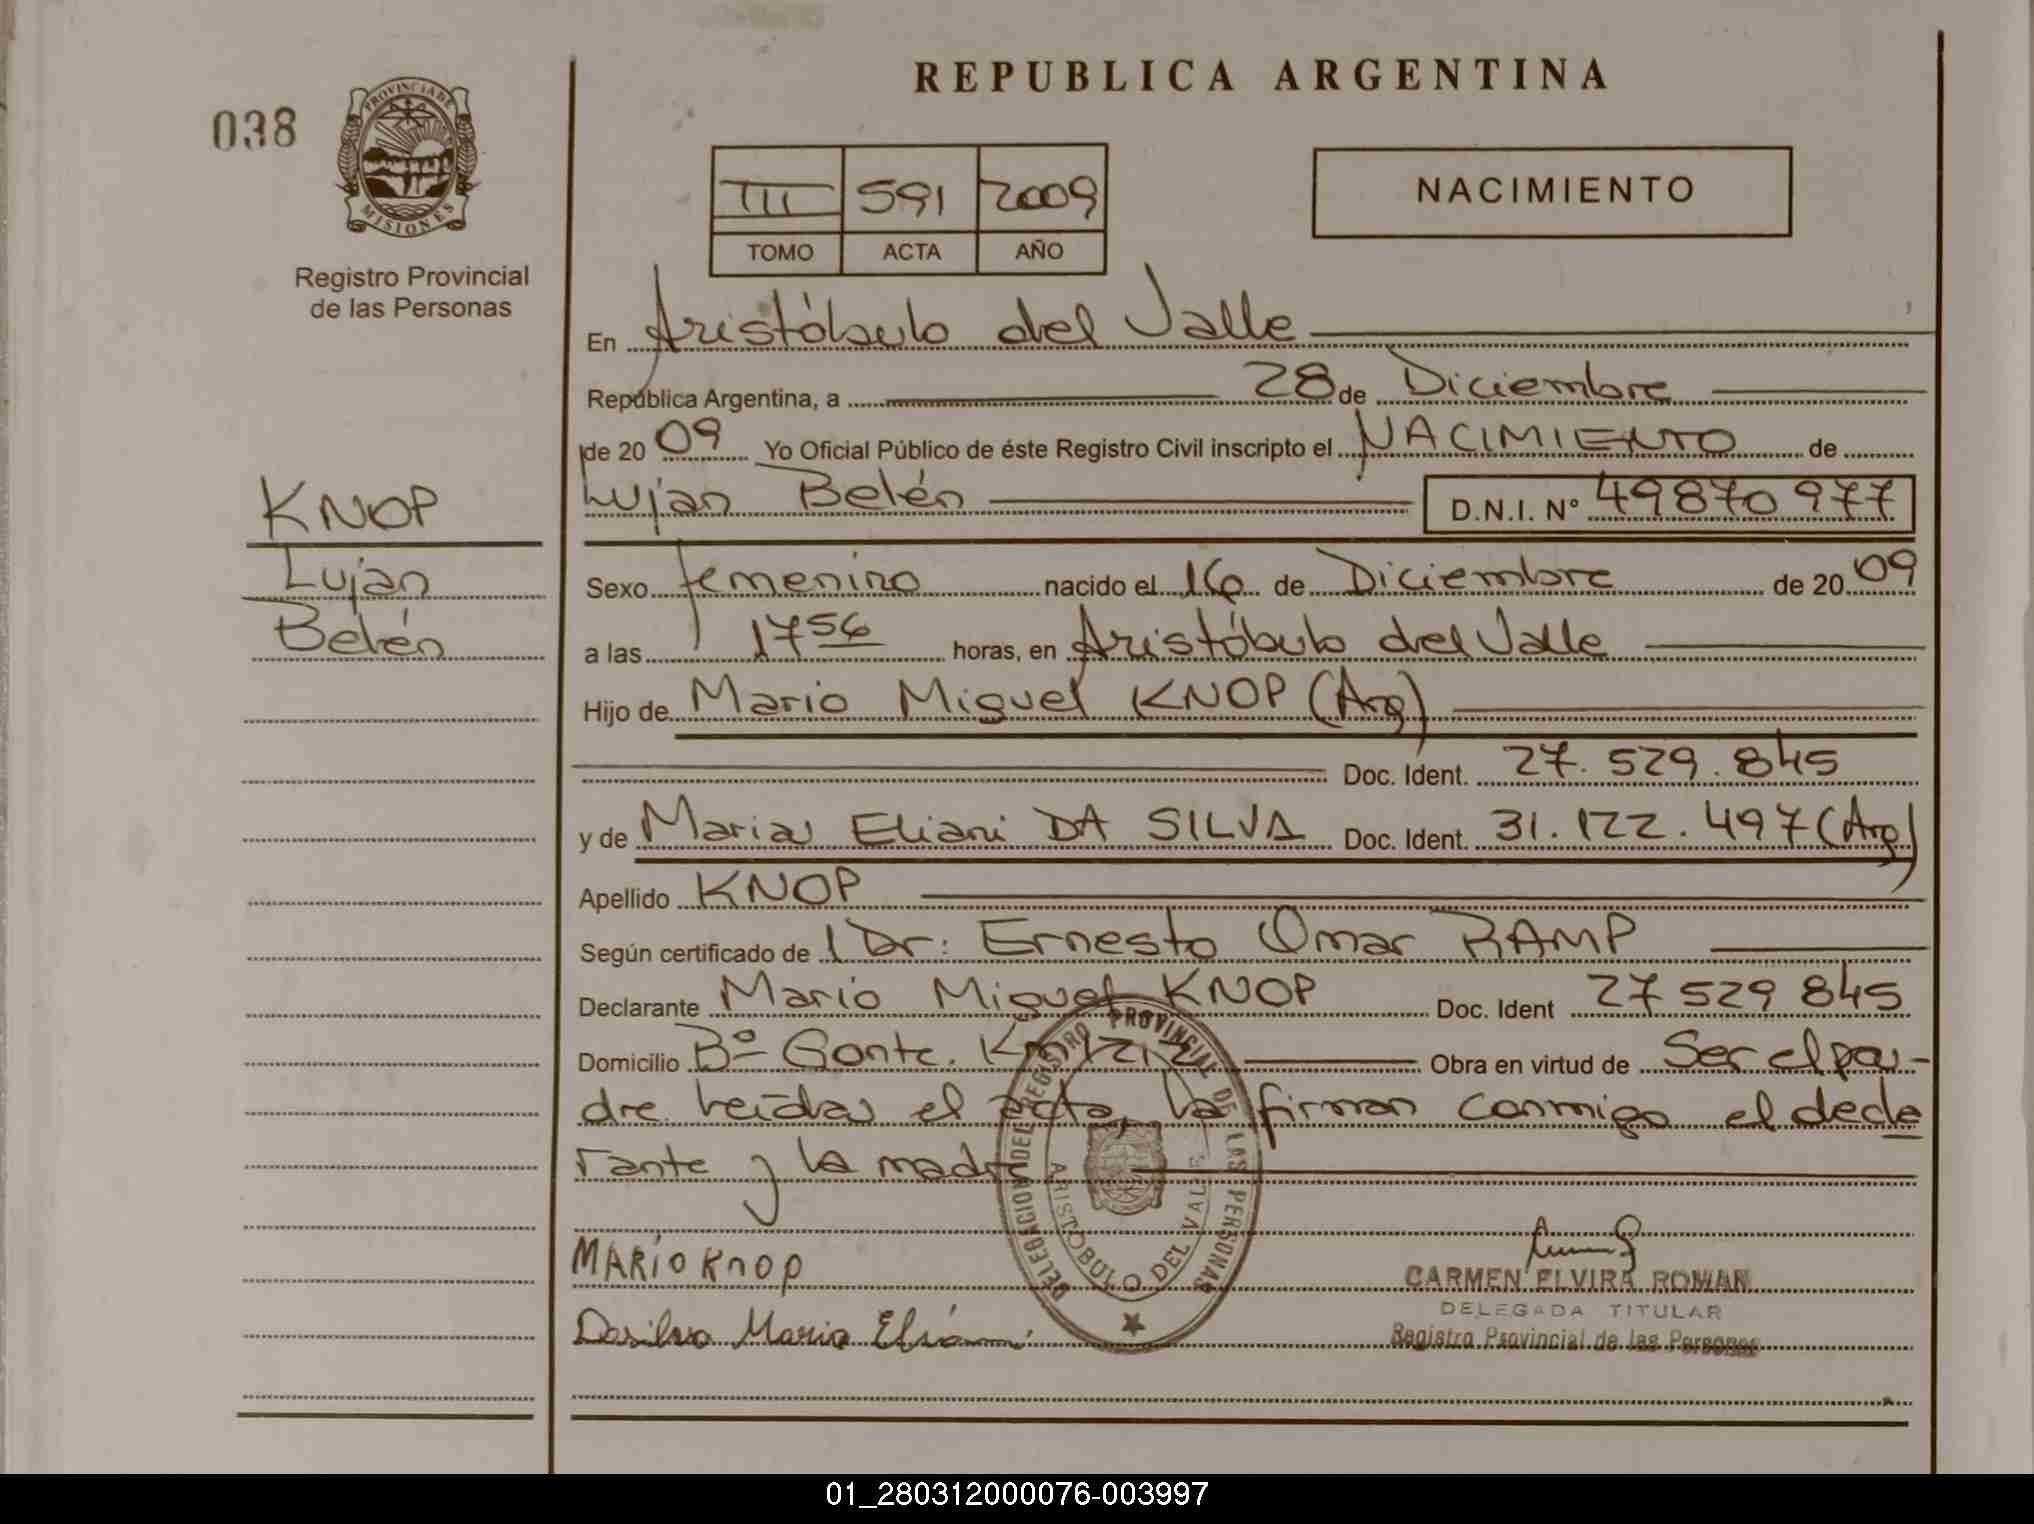 REPUBLICA ARGENTINA
038
PROVINCIA DE MISIONES
Registro Provincial
de las Personas
III 591 2009
TOMO ACTA AÑO
NACIMIENTO
En Aristóbulo del Valle
República Argentina, a 28 de Diciembre
de 2009 Yo Oficial Público de éste Registro Civil inscripto el NACIMIENTO de
Lujan Belén D.N.I. Nº 49870977
KNOP
Lujan
Belén
Sexo femenino nacido el 16 de Diciembre de 2009
a las 17 56 horas, en Aristóbulo del Valle
Hijo de Mario Miguel KNOP (Arg)
Doc. Ident. 27.529.845
y de Maria Eliani DA SILVA Doc. Ident. 31.122.497 (Arg)
Apellido KNOP
Según certificado de Dr: Ernesto Omar RAMP
Declarante Mario Miguel KNOP Doc. Ident 27529845
Domicilio Bº Gontc. Km 1212 Obra en virtud de Ser el pa-
dre leída el acta, la firman conmigo el decla
rante y la madre
MARIO KNOP
Dasilva Maria Eliani
DELEGACION DEL REGISTRO PROVINCIAL DE LAS PERSONAS
ARISTOBULO DEL VALLE
CARMEN ELVIRA ROMAN
DELEGADA TITULAR
Registro Provincial de las Personas
01_280312000076-003997